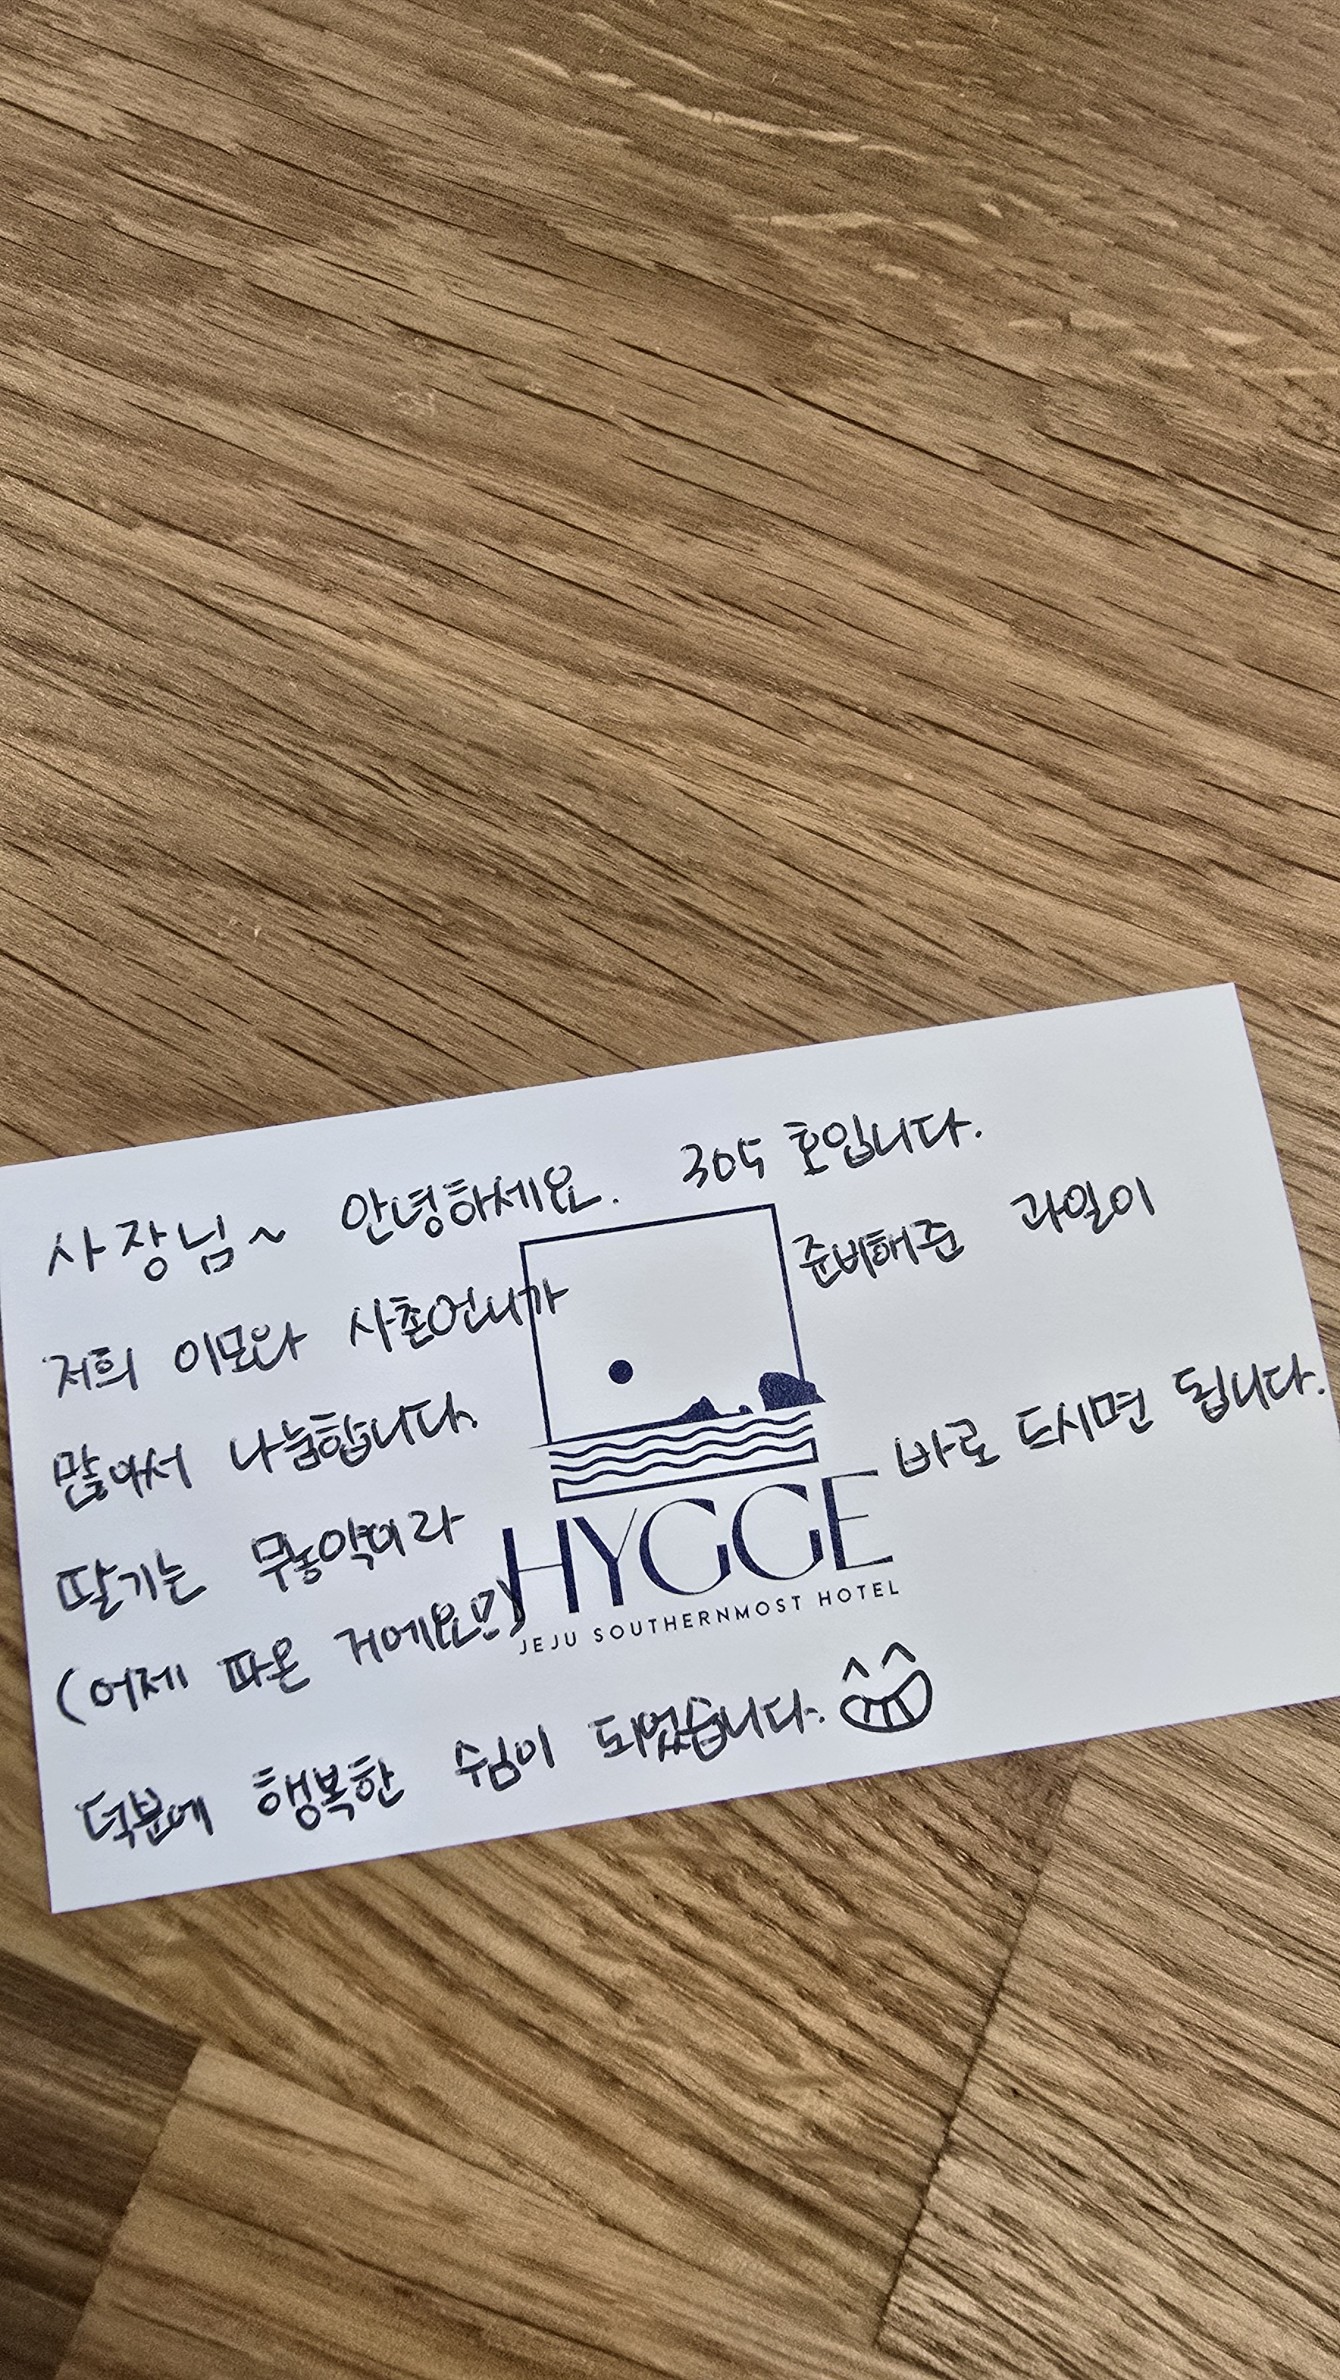 사장님~ 안녕하세요. 305 호입니다.
저희 이모와 사촌언니가 준비해준 과일이
많아서 나눔합니다.
딸기는 무농약이라 바로 드시면 됩니다.
(어제 따온 거에요.)
덕분에 행복한 쉼이 되었습니다.
HYGGE
JEJU SOUTHERNMOST HOTEL